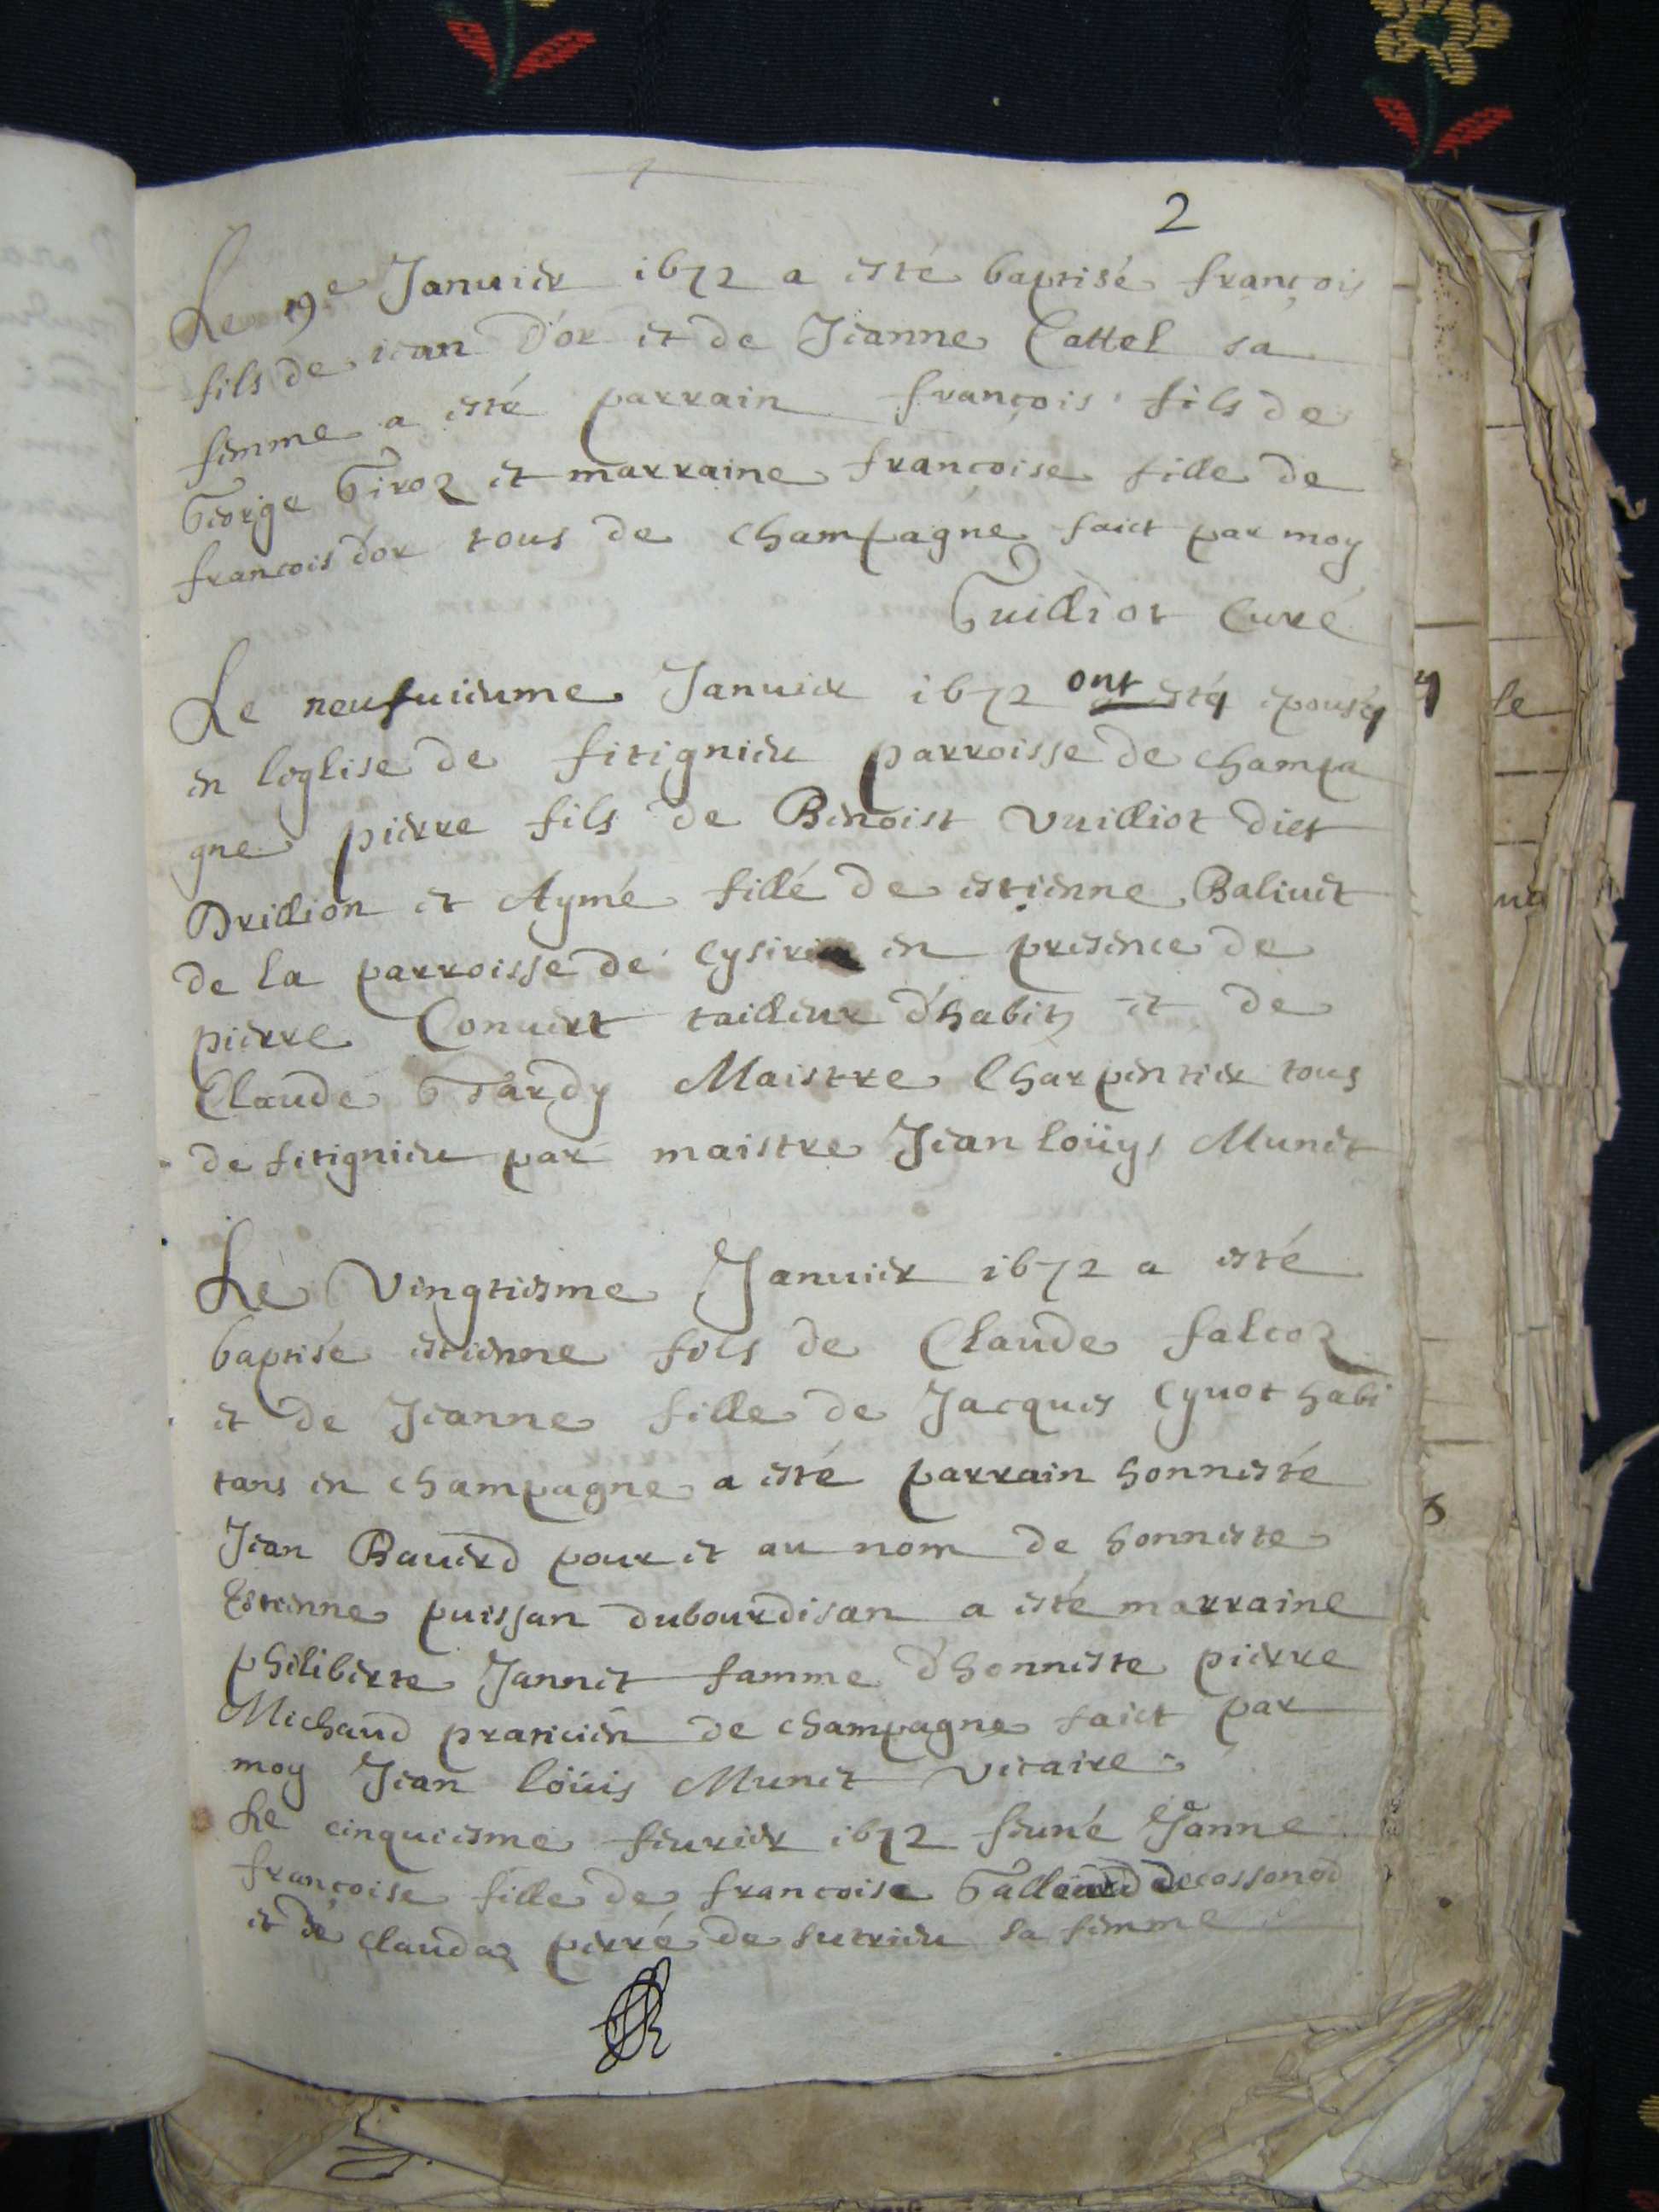 2
Le 19e Januier 1672 a esté baptisé françois
fils de iean D'or et de Jeanne Cattel sa
femme a esté parrain françois fils de
George Giroz et marraine francoise fille de
francois d'or tous de champagne faict par moy
Guilliot Curé
Le neufuiesme Januier 1672 ont estés epousés
en leglise de fitignieu parroisse de champa
gne pierre fils de Benoist Vuilliot dict
Drillion et Aymé fillé de estienne Baliuet
de la parroisse de en presence de
pierre Conuert tailleur d'habits et de
Claude Tardy Maistre Charpentier tous
de fitignieu par maistre Jean loüys Munet
Le Vingtiesme Januier 1672 a esté
baptisé estienne fils de Claude falcoz
et de Jeanne fille de Jacques Cyuot habi
tans en champagne a esté parrain honnesté
Jean Bauerd pour et au nom de honneste
Estienne puissan dubourdisan a esté marraine
philiberte Jannet famme d'honneste pierre
Michaud praticien de champagne faict par
moy Jean loüis Munet Vicaire
Le cinquiesme feurier 1672 Jeanne
françoise fille de francoise de cossonod
et de claudaz perré de sutrieu sa femme
le